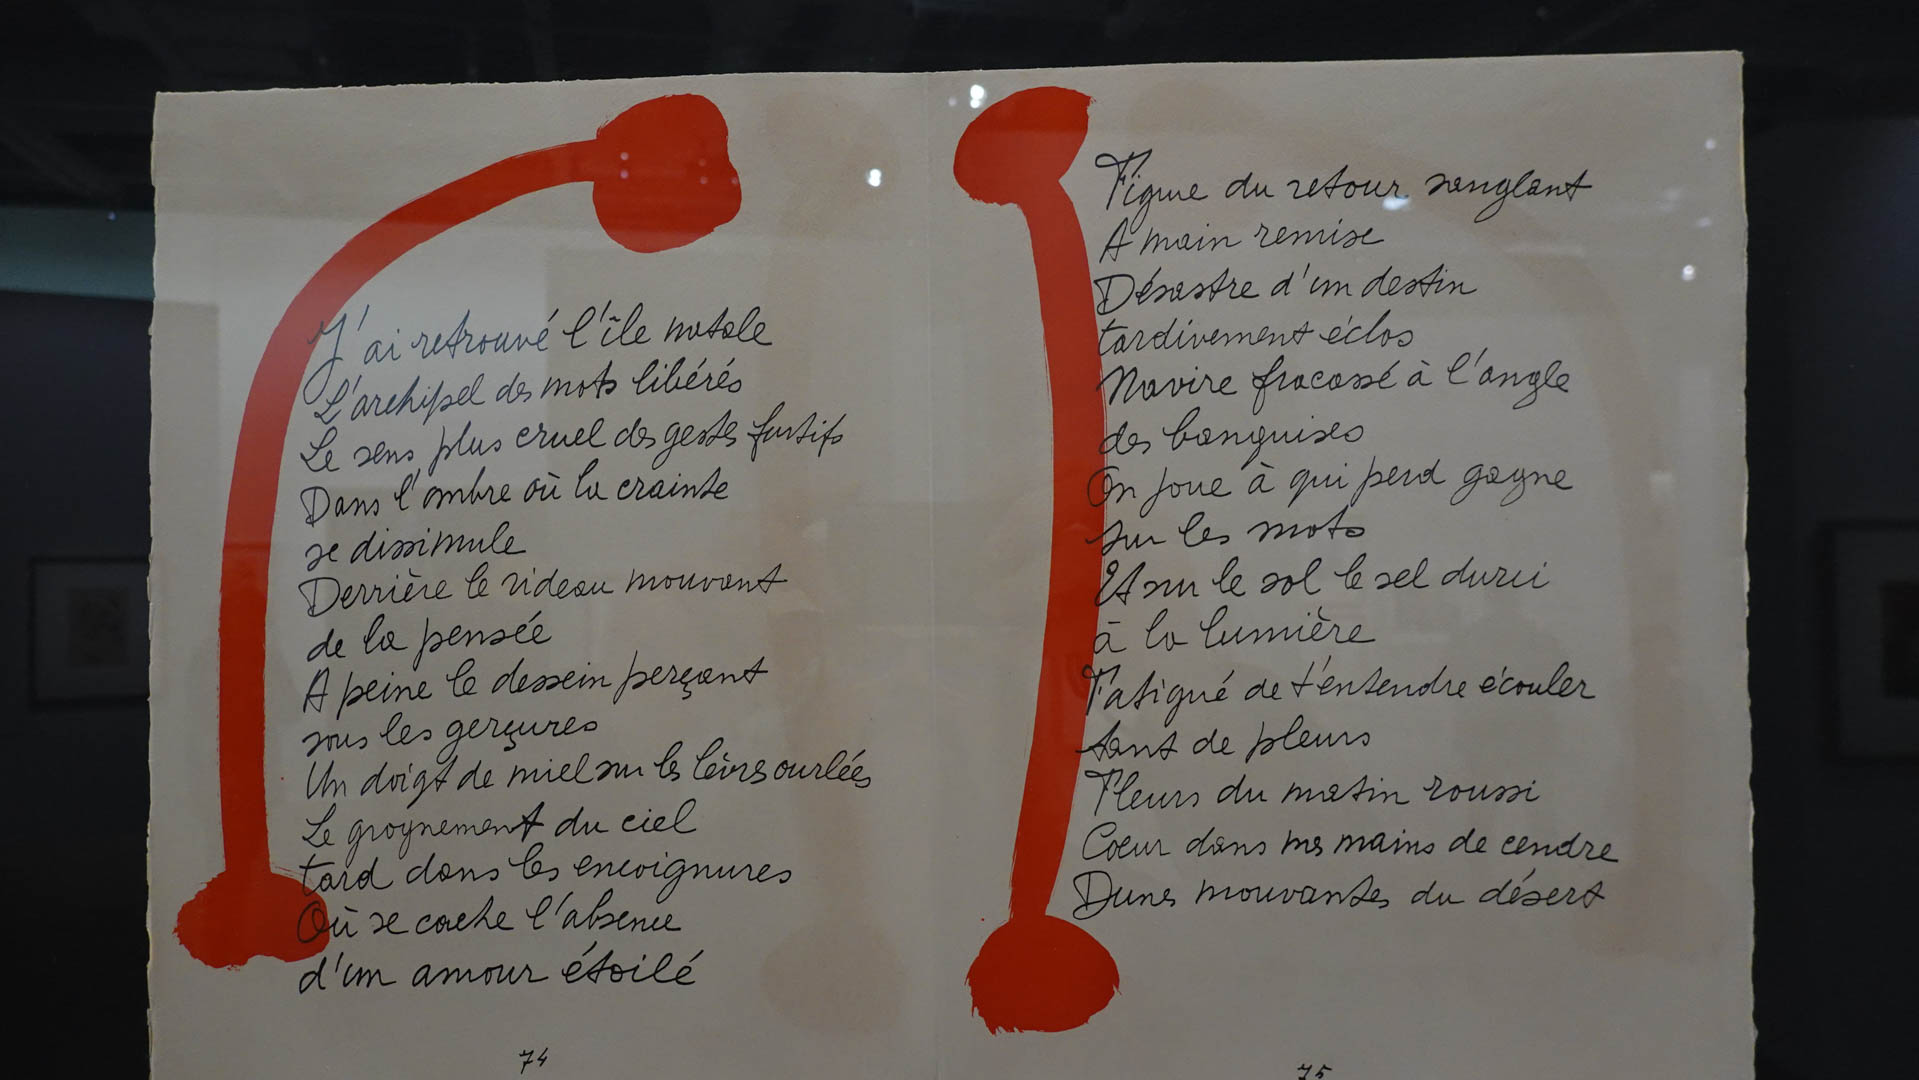 J'ai retrouvé l'île natale
L'archipel des mots libérés
Le sens plus cruel des gestes furtifs
Dans l'ombre où la crainte
se dissimule
Derrière le rideau mouvant
de la pensée
A peine le dessein perçant
sous les gerçures
Un doigt de miel sur les lèvres ourlées
Le grognement du ciel
tard dans les encoignures
Où se cache l'absence
d'un amour étoilé
74
Figure du retour sanglant
A main remise
Désastre d'un destin
tardivement éclos
Navire fracassé à l'angle
des banquises
On joue à qui perd gagne
sur les mots
Et sur le sol le sel durci
à la lumière
Fatigué de t'entendre écouler
tant de pleurs
Fleurs du matin roussi
Coeur dans mes mains de cendre
Dunes mouvantes du désert
75